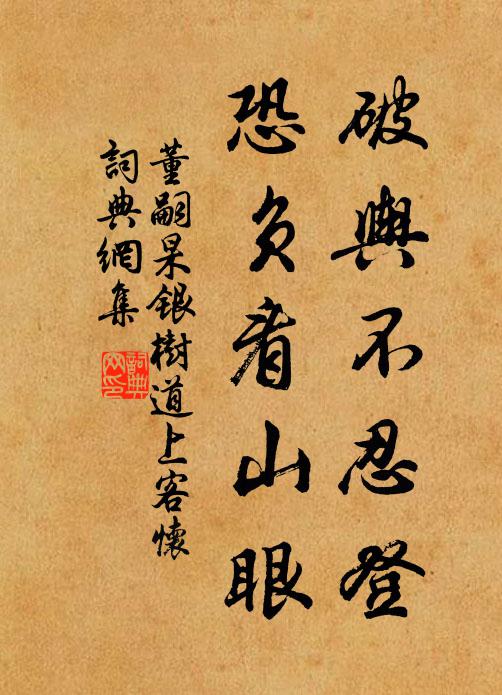 破輿不忍登
恐負看山眼
董嗣杲銀樹道上客懷
詞典網集
詞典網印